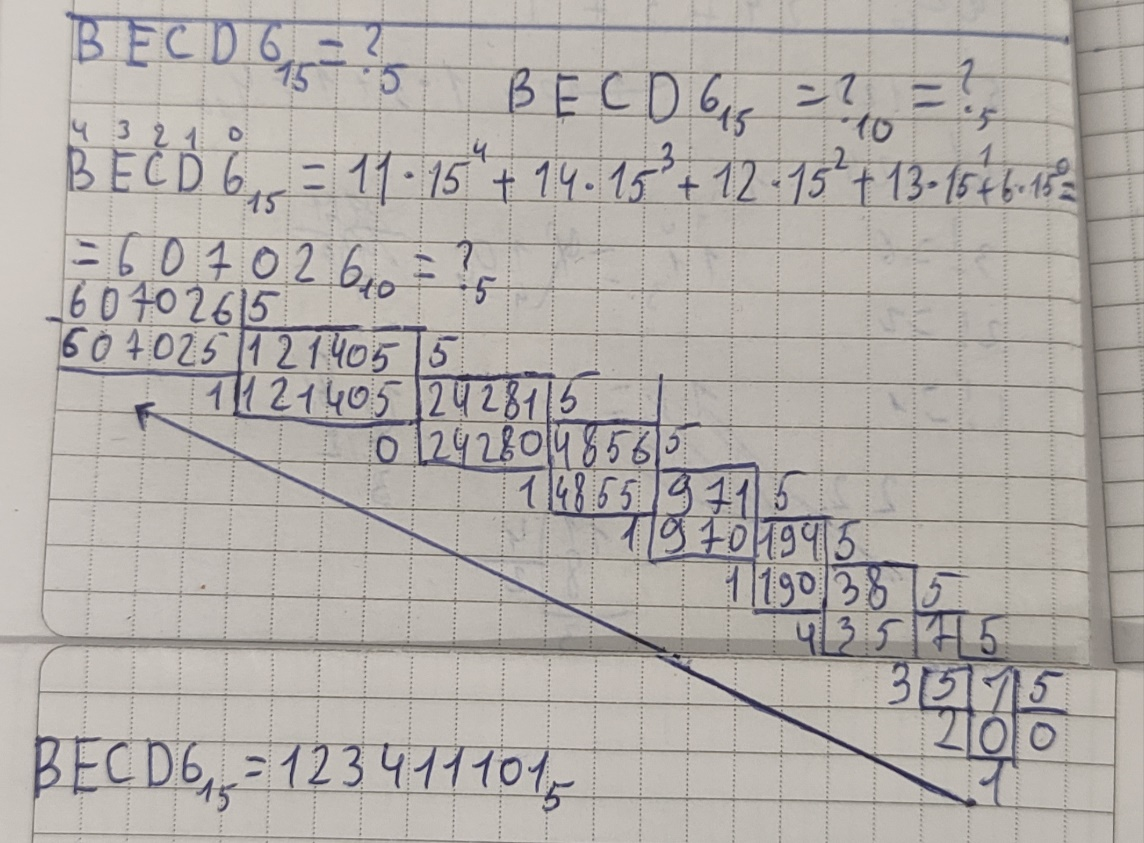 BECD6₁₅ = ?₅
BECD6₁₅ = ?₁₀ = ?₅
4 3 2 1 0
BECD6₁₅ = 11·15⁴ + 14·15³ + 12·15² + 13·15¹ + 6·15⁰ =
= 607026₁₀ = ?₅
607026 5
- 607025 121405 5
1 121405 24281 5
0 24280 4856 5
1 4855 971 5
1 970 194 5
1 190 38 5
4 35 7 5
3 5 1 5
2 0 0
1
BECD6₁₅ = 123411101₅